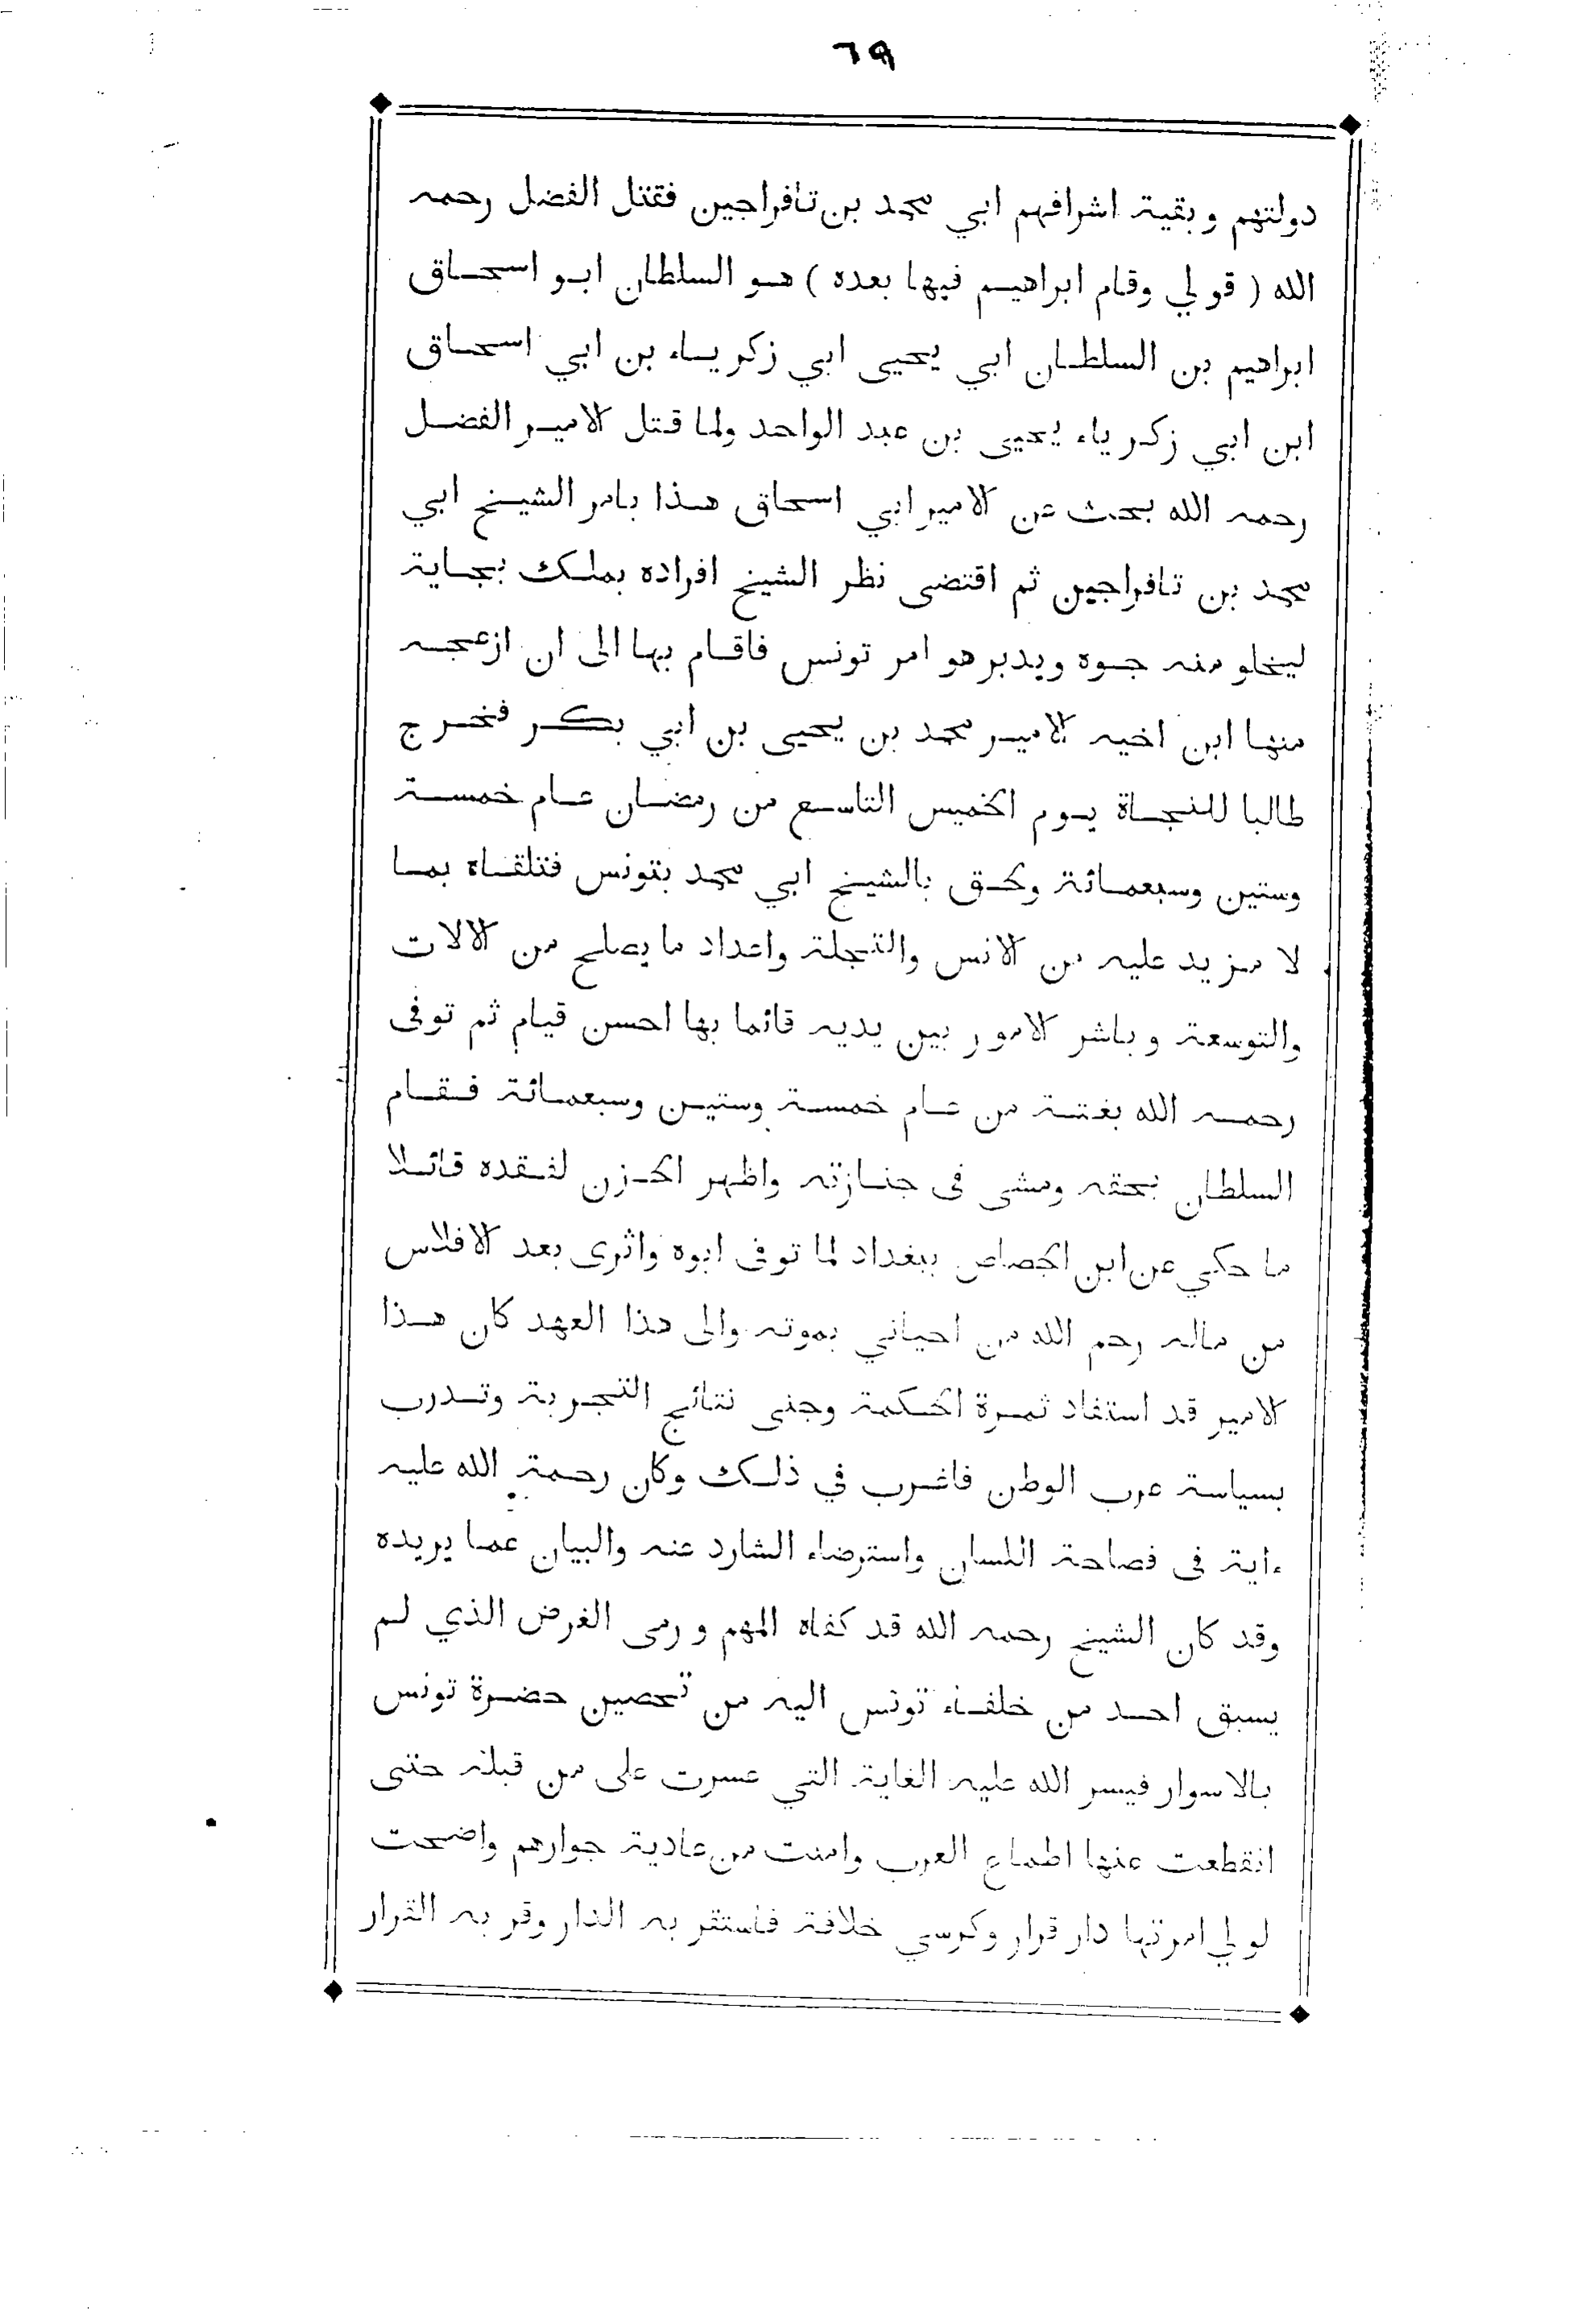 ٦٩
دولتهم وبقية اشرافهم ابي محمد بن تافراجين فقتل الفضل رحمه
الله ( قولي وقام ابراهيم فيها بعده ) هو السلطان ابو اسحاق
ابراهيم بن السلطان ابي يحيى ابي زكرياء بن ابي اسحاق
ابن ابي زكرياء يحيى بن عبد الواحد ولما قتل الامير الفضل
رحمه الله بحث عن الامير ابي اسحاق هذا بامر الشيخ ابي
محمد بن تافراجين ثم اقتضى نظر الشيخ افراده بملك بجاية
ليخلو منه جوه ويدبر هو امر تونس فاقام بها الى ان ازعجه
منها ابن اخيه الامير محمد بن يحيى بن ابي بكر فخرج
طالبا للنجاة يوم الخميس التاسع من رمضان عام خمسة
وستين وسبعمائة ولحق بالشيخ ابي محمد بتونس فتلقاه بما
لا مزيد عليه من الانس والتجلة واعداد ما يصلح من الالات
والتوسعة وباشر الامور بين يديه قائما بها احسن قيام ثم توفى
رحمه الله بغتة من عام خمسة وستين وسبعمائة فقام
السلطان بحقه ومشى فى جنازته واظهر الحزن لفقده قائلا
ما حكي عن ابن الجصاص ببغداد لما توفى ابوه واثرى بعد الافلاس
من ماله رحم الله من احياني بموته والى هذا العهد كان هذا
الامير قد استفاد ثمرة الحكمة وجنى نتائج التجربة وتدرب
بسياسة عرب الوطن فاغرب في ذلك وكان رحمة الله عليه
ءاية فى فصاحة اللسان واسترضاء الشارد عنه والبيان عما يريده
وقد كان الشيخ رحمه الله قد كفاه المهم ورمى الغرض الذي لم
يسبق احد من خلفاء تونس اليه من تحصين حضرة تونس
بالاسوار فيسر الله عليه الغاية التي عسرت على من قبله حتى
انقطعت عنها اطماع العرب وامنت من عادية جوارهم واضحت
لولي امرتها دار قرار وكرسي خلافة فاستقر به الدار وقر به القرار